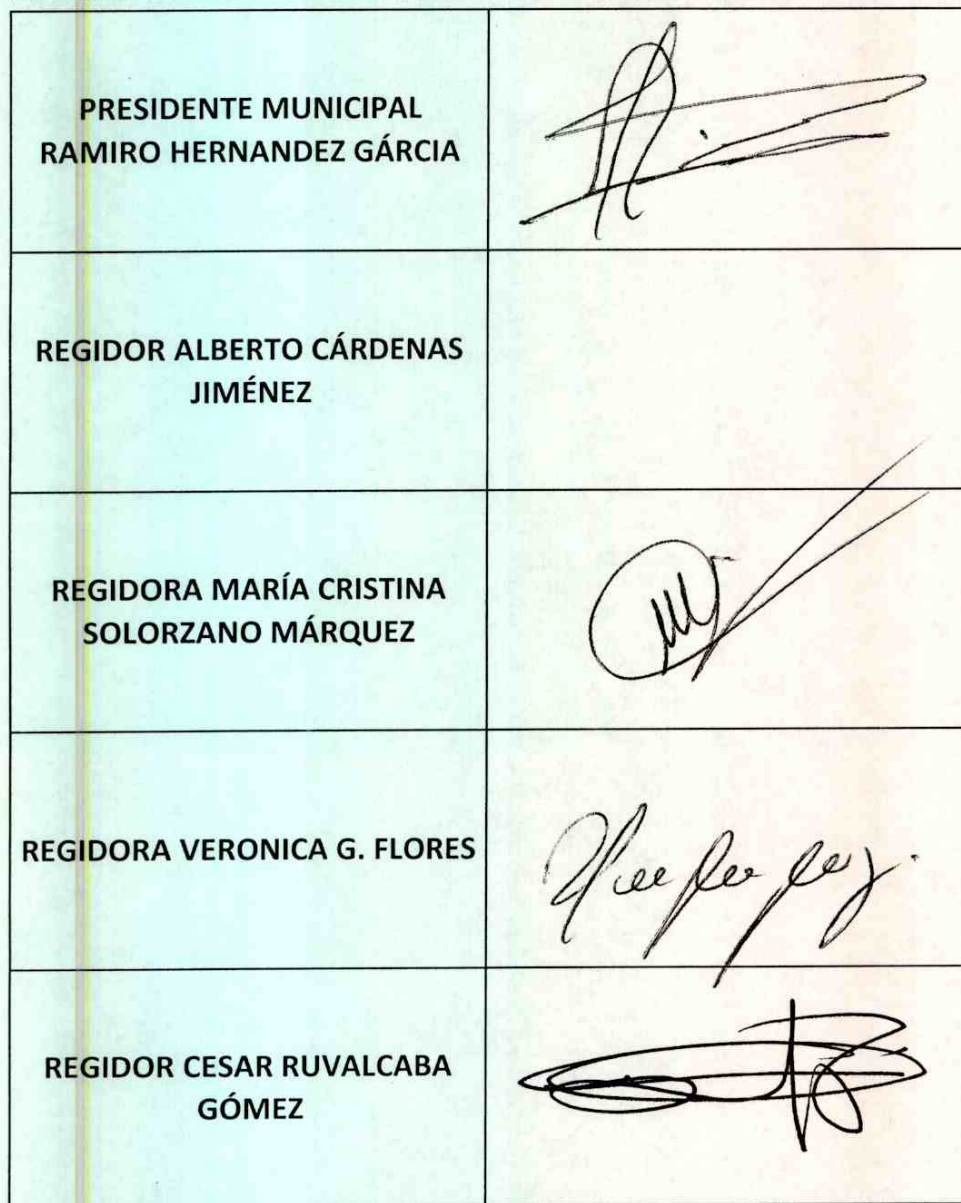 PRESIDENTE MUNICIPAL
RAMIRO HERNANDEZ GÁRCIA
REGIDOR ALBERTO CÁRDENAS
JIMÉNEZ
REGIDORA MARÍA CRISTINA
SOLORZANO MÁRQUEZ
REGIDORA VERONICA G. FLORES
REGIDOR CESAR RUVALCABA
GÓMEZ